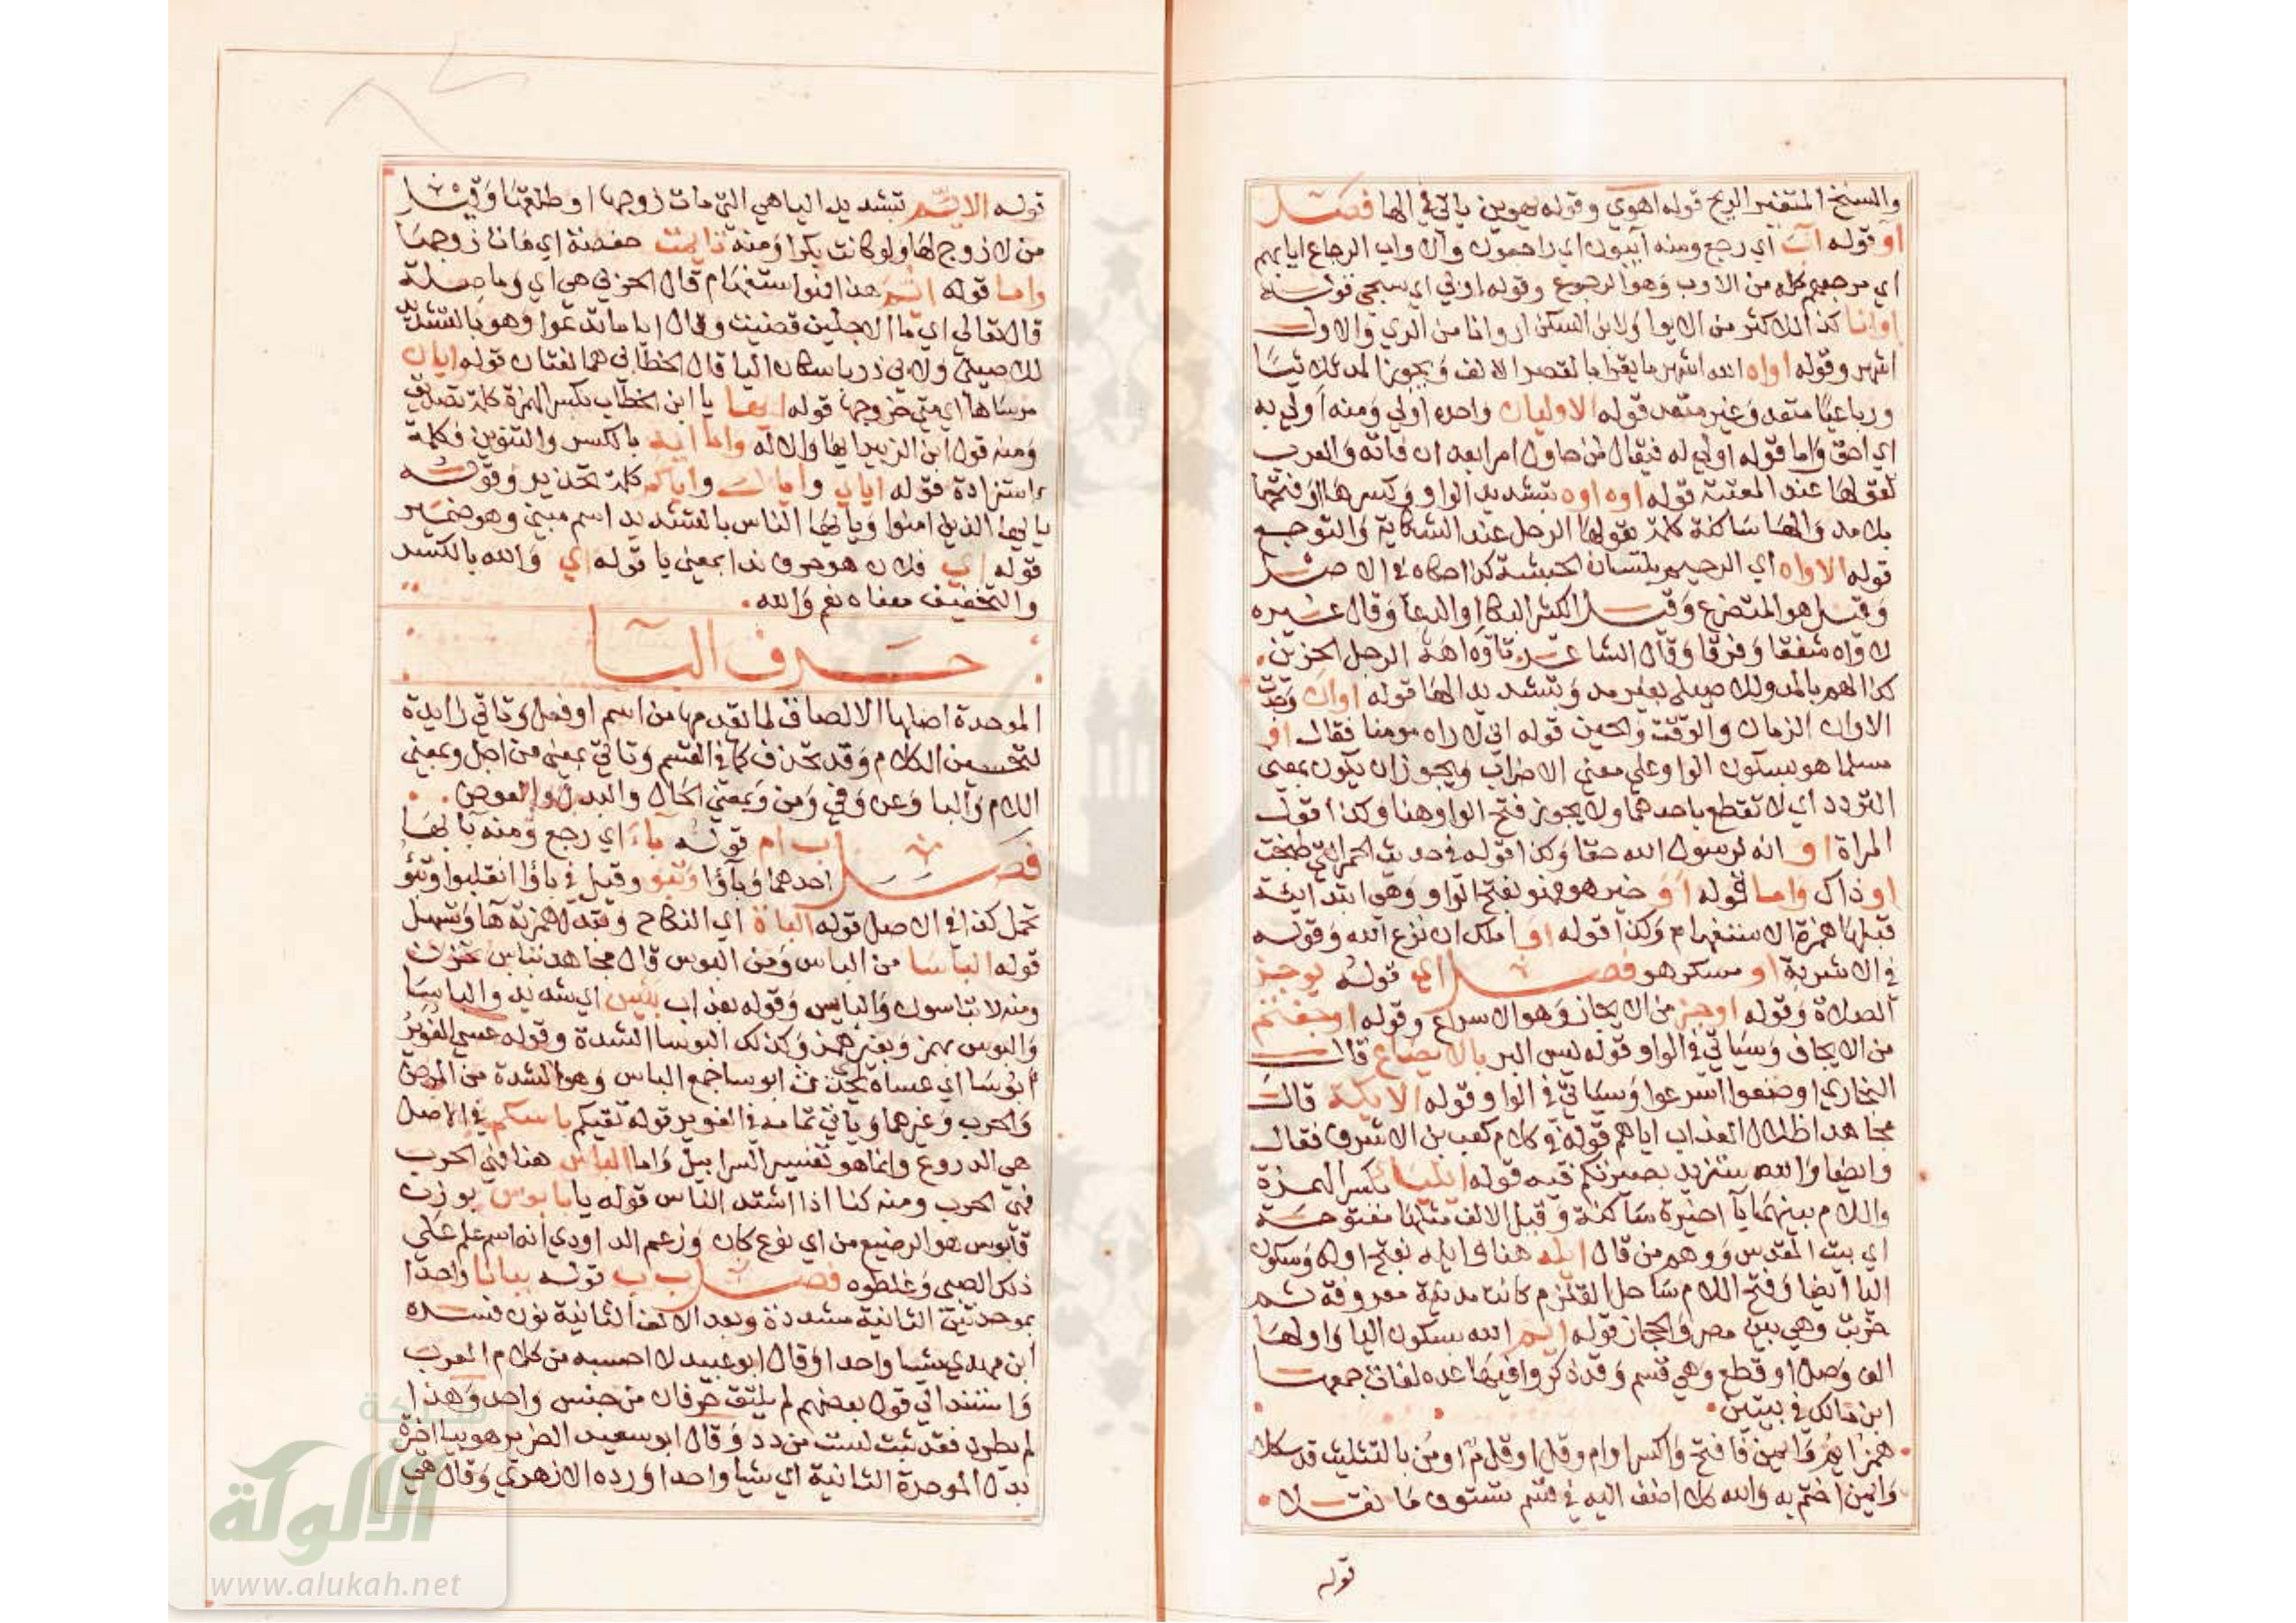 والسنخ المتغير الريح قوله اهوي وقوله يهوين ياتي في الها فصل
او قوله آب اي رجع ومنه آيبون اي راجعون والاواب الرجاع ايابهم
اي مرجعهم كله من الاوب وهو الرجوع وقوله اوبي اي سبحي قوله
اوانا كذا للاكثر من الايوا ولابن السكن اروانا من الري والاول
اشهر وقوله اواه الله اشهر ما يقرا بالقصر الالف ويجوز المد ثلاثيا
ورباعيا متعد وغير متعد قوله الاوليان واحده اولي ومنه اولي به
اي احق واما قوله اولي له فيقال لمن حاول امرا بعد ان فاته والعرب
تقولها عند المعتبة قوله اوه اوه بتشديد الواو وكسرها او فتحها
بلا مد والها ساكنة كلمة يقولها الرجل عند الشكاية والتوجع
قوله الاواه اي الرحيم بلسان الحبشة كذا حكاه في الاصل
وقيل هو المتضرع وقيل الكثير البكا والدعا وقال غيره
لاواه شفقا وفرقا وقال الشاعر تاوه اهة الرجل الحزين
كذا لهم بالمد وللاصيلي بغير مد وبتشديد الها قوله اوان
الاوان الزمان والوقت والحين قوله اني لاراه مومنا فقال او
مسلما هو بسكون الواو علي معني الاضراب ويجوز ان يكون بمعني
التردد اي لا تقطع باحدهما ولا يجوز فتح الواو هنا وكذا قول
المراة او انه لرسول الله حقا وكذا قوله في حديث الحمر التي طبخت
او ذاك واما قوله أوَ خير هو فهو بفتح الواو وهي ابتدائية
قبلها همزة الاستفهام وكذا قوله او املك ان نزع الله وقوله
في الاشربة او مسكر هو فصل اي قوله يوجز
الصلاة وقوله اوجز من الايجاز وهو الاسراع وقوله اوجفتم
من الايجاف وسياتي في الواو قوله ليس البر بالايضاع قال
البخاري اوضعوا اسرعوا وسياتي في الواو وقوله الايكة قال
مجاهد اظلال العذاب اياهم قوله في كلام كعب بن الاشرف فقال
وايضا والله ستزيد بصيرتكم فيه قوله ايليا بكسر الهمزة
واللام بينهما يا اخيرة ساكنة وقبل الالف مثلها مفتوحة
اي بيت المقدس ووهم من قال ايله هنا في ايله بفتح اوله وسكون
اليا ايضا وفتح اللام ساحل القلزم كانت مدينة معروفة ثم
خربت وهي بين مصر والحجاز قوله ايم الله بسكون اليا واولها
الف وصل او قطع وهي قسم وقد ذكروا فيها عدة لغات جمعها
ابن مالك في بيتين
همز ايم وايمن فافتح واكسر او ام وقل او قل م او من بالتثليث قد شكلا
وايمن اختم به والله كلا اضف اليه في قسم تستوف ما نقلا
قوله
قوله الايم بتشديد اليا هي التي مات زوجها او طلقها وقيل
من لا زوج لها ولو كانت بكرا ومنه تايمت حفصة اي مات زوجها
واما قوله ايم هذا فهو استفهام قال الحربي هي اي وما صلة
قال تعالي اي ما الاجلين قضيت وقال ايا ما تدعوا وهو بالتشديد
للاصيلي ولابي ذر باسكان اليا قال الخطابي هما لغتان قوله ايان
مرساها اي متي خروجها قوله ايها يا ابن الخطاب بكسر الهمزة كلمة تصديق
ومنه قول ابن الزبير ايها والاله واما ايه بالكسر والتنوين فكلمة
استزادة قوله اياي واياك واياكم كلمة تحذير وقوله
يا ايها الذين امنوا ويا ايها الناس بالتشديد اسم مبني وهو ضمير
قوله اي فلان هو حرف ندا بمعني يا قوله اي والله بالكسر
والتخفيف معناه نعم والله
حرف البا
الموحدة اصلها الالصاق لما تقدمها من اسم او فعل وتاتي زايدة
لتحسين الكلام وقد تحذف كما في القسم وتاتي بمعني من اجل وبمعني
اللام والبا وعن وفي ومن وبمعني الحال والبدل والعوض
فصل ب ام قوله باء اي رجع ومنه با بها
احدهما وباؤا وتبو وقيل في باؤا انقلبوا وتبؤ
تحمل كذا في الاصل قوله الباة اي النكاح وتبدل همزته ها وتسهل
قوله الباسا من الباس ومن البوس قال مجاهد تبتاس تحزن
ومنه لا تباسون والبايس وقوله بعذاب بئيس اي شديد والباسا
والبوس بهمز وبغير همز وكذلك البوسا الشدة وقوله عسي الغوير
ابوسا اي عساه يحدث ابوسا جمع الباس وهو الشدة من المرض
والحرب وغيرهما وياتي تمامه في الغوير قوله تقيكم باسكم في الاصل
هي الدروع وانما هو تفسير السرابيل واما الباس هنا فهي الحرب
فهي الحرب ومنه كنا اذا اشتد الناس قوله يا بابوس بوزن
قابوس هو الرضيع من اي نوع كان وزعم الداودي انه اسم علم علي
ذلك الصبي وغلطوه فصل ب ب قوله ببانا واحدا
بموحدتين الثانية مشددة وبعد الالف الثانية نون فسره
ابن مهدي شيا واحدا وقال ابو عبيد لا احسبه من كلام العرب
واستند الي قول بعضهم لم يلتق حرفان من جنس واحد وهذا
لم يطرد فقد ثبت لست من دد وقال ابو سعيد الضرير هو بيا اخرة
بدل الموحدة الثانية اي شيا واحدا ورده الازهري وقال هي
شبكة
الألوكة
www.alukah.net